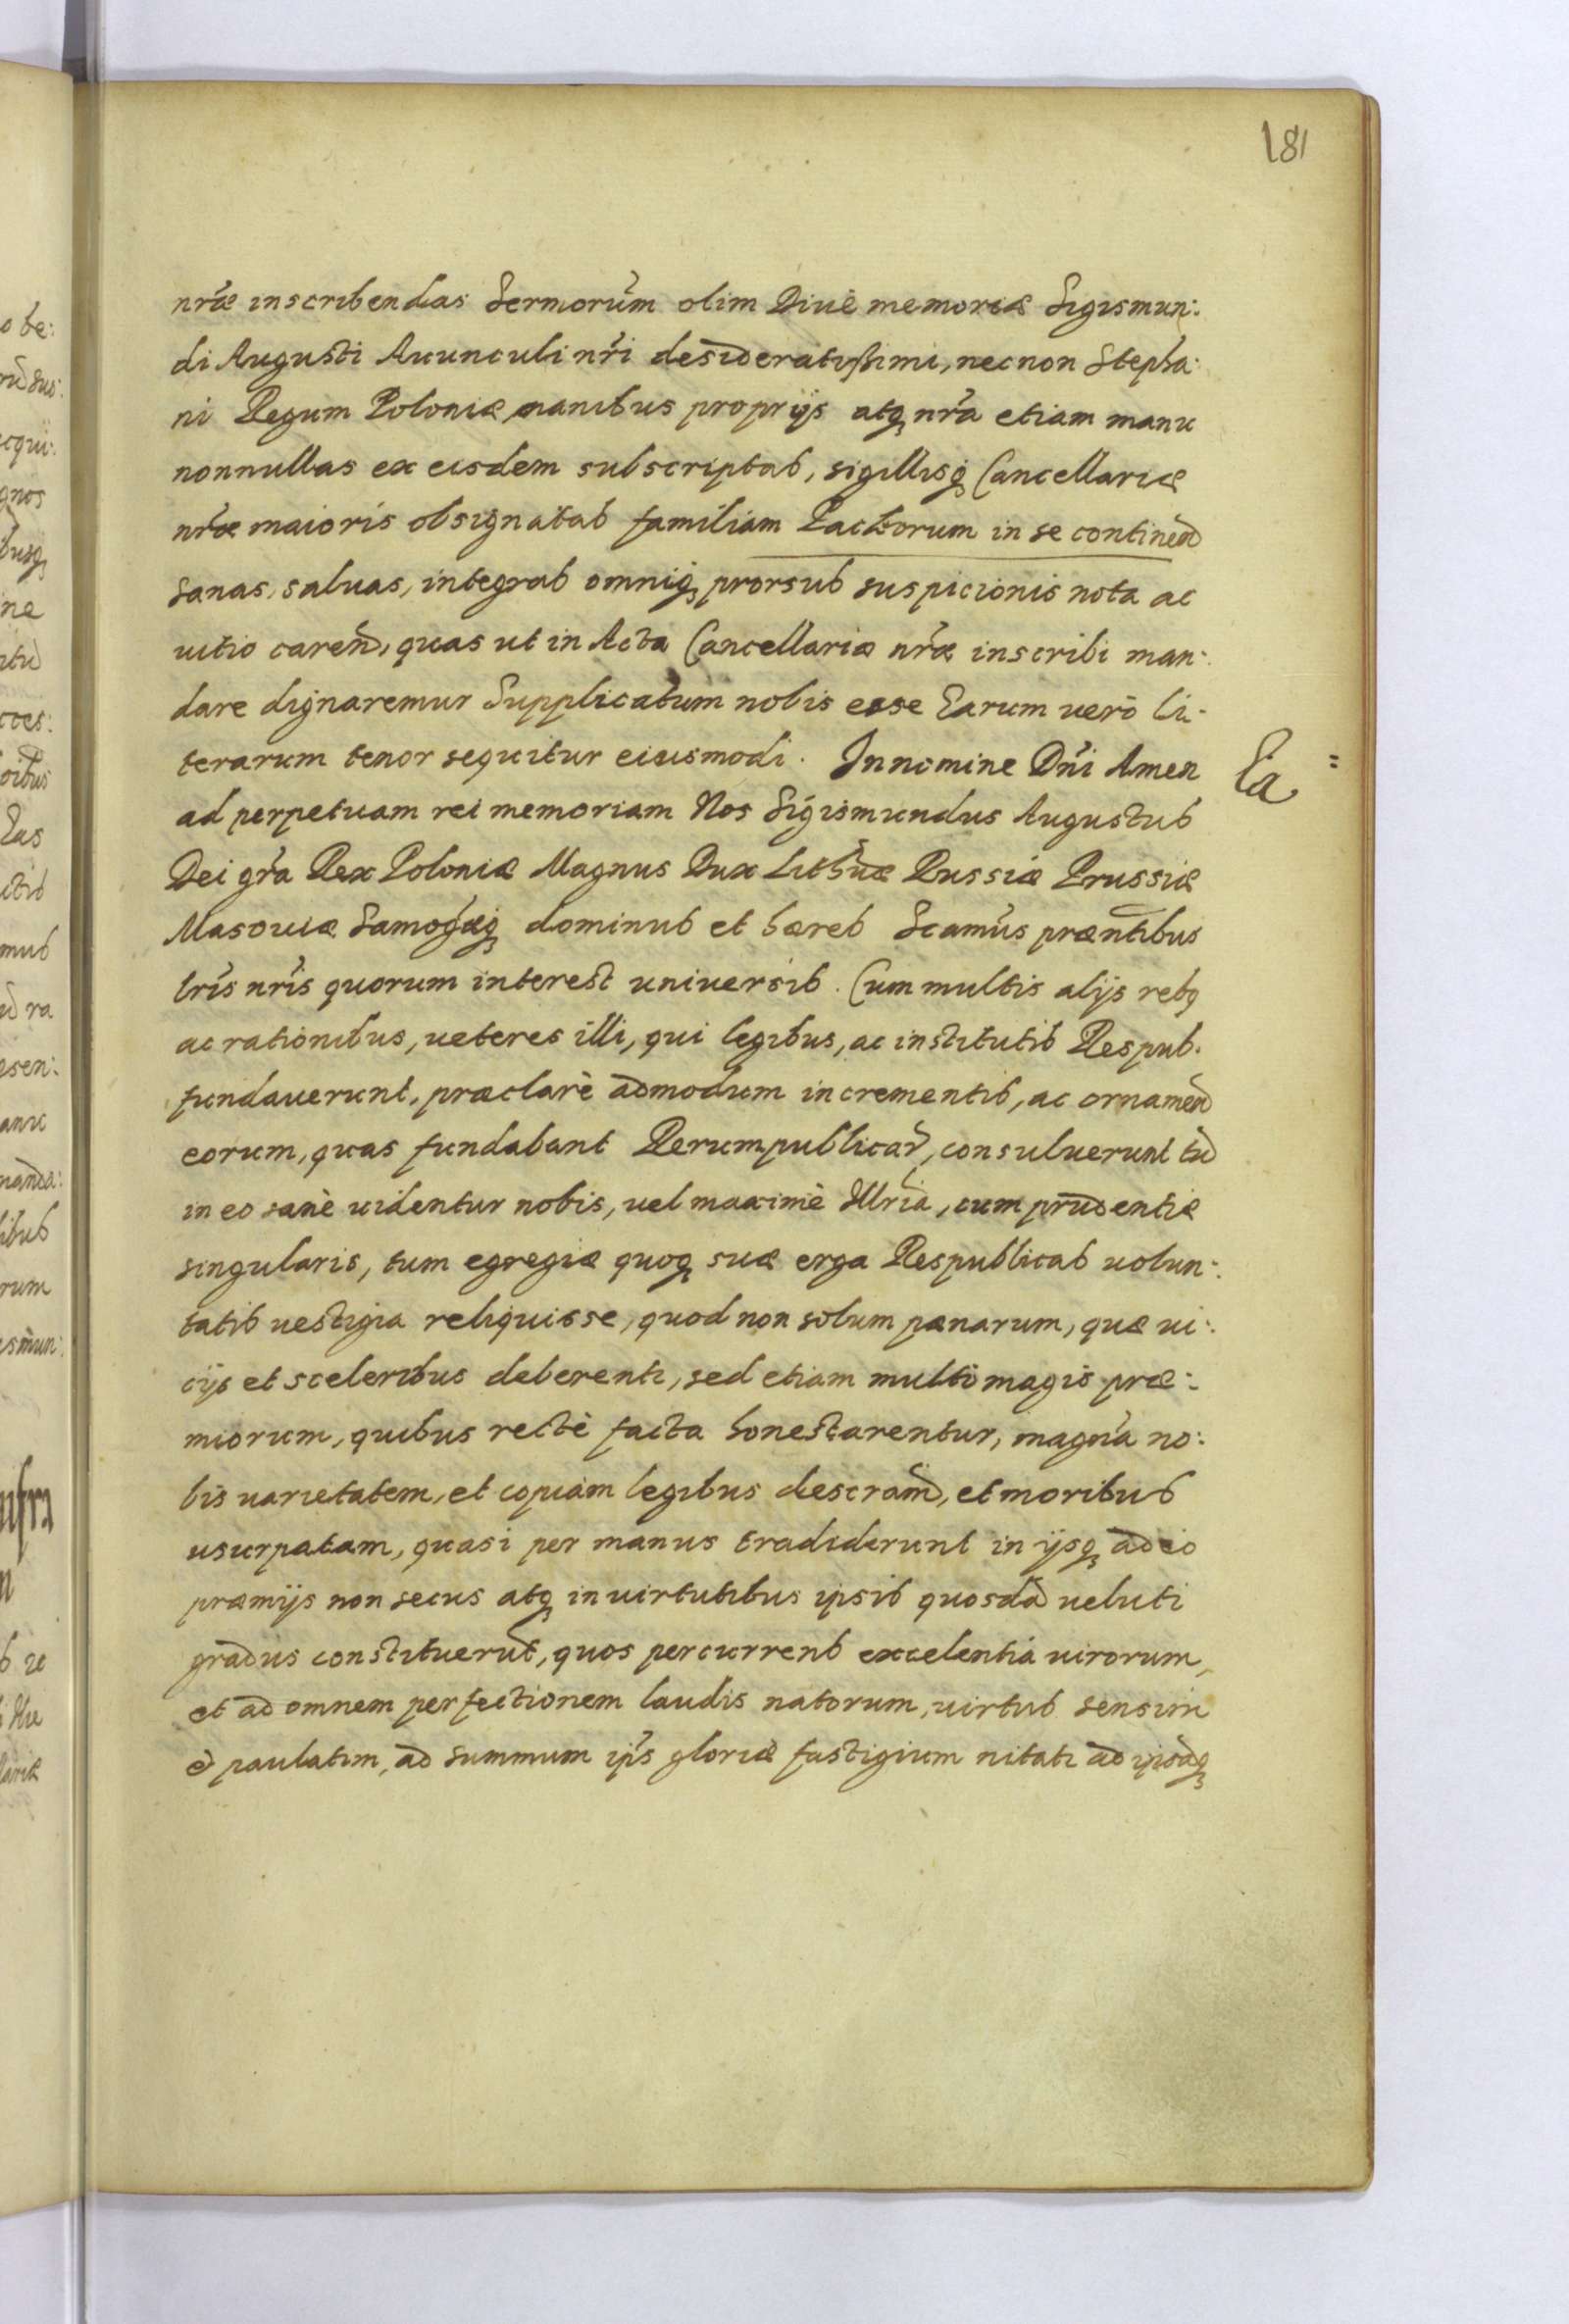 181
nr̃æ inscribendas Sermorũm olim Diuę memoriæ Sigismun:
di Augusti Auunculi nr̃i desideratißimi, necnon Stepha:
ni Regum Poloniæ manibus proprijs atq̨ nr̃a etiam manu
nonnullas ex eisdem subscriptas, sigillisq̨ Cancellariæ
nr̃æ maioris obsignatas familiam Pactorum in se continen̄
sanas, saluas, integras omniq̨ prorsus suspicionis nota ac
uitio caren̄, quas ut in Acta Cancellariæ nr̃æ inscribi man:
dare dignaremur Supplicatum nobis esse Earum uerò li:
terarum tenor sequitur eiusmodi. In nomine Dn̄i Amen
Ea =
ad perpetuam rei memoriam Nos Sigismundus Augustus
Dei gr̃a Rex Poloniæ Magnus Dux Lithũæ Russiæ Prussiæ
Masouiæ Samog̃æq̨ dominus et hæres Scamũs præn̄tibus
lr̃is nr̃is quorum interest universis. Cum multis alijs rebq̨
ac rationibus, ueteres illi, qui legibus, ac institutis Respub.
fundauerunt, præclarè admodum incrementis, ac ornamen̄
eorum, quas fundabant Rerumpublicar̄, consuluerunt tū
in eo sanè uidentur nobis, uel maximè Illr̃ia, cum prudentiæ
singularis, tum egregiæ quoq̨ suæ erga Respublicas uolun:
tatis uestigia reliquisse, quod non solum pænarum, quæ ui:
cijs et sceleribus deberentr, sed etiam multò magis præ:
miorum, quibus rectè facta honestarentur, magnã no:
bis uarietatem, et copiam legibus descram̄, et moribus
usurpatam, quasi per manus tradiderunt in ijsq̨ adeò
præmijs non secus atq̨ in uirtutibus ipsis quosdā ueluti
gradus constituerūt, quos percurrens excelentia uirorum,
et ad omnem perfectionem laudis natorum, uirtus sensim
& paulatim, ad summum ip̃s gloriæ fastigium nitatr ad ipsāq̨